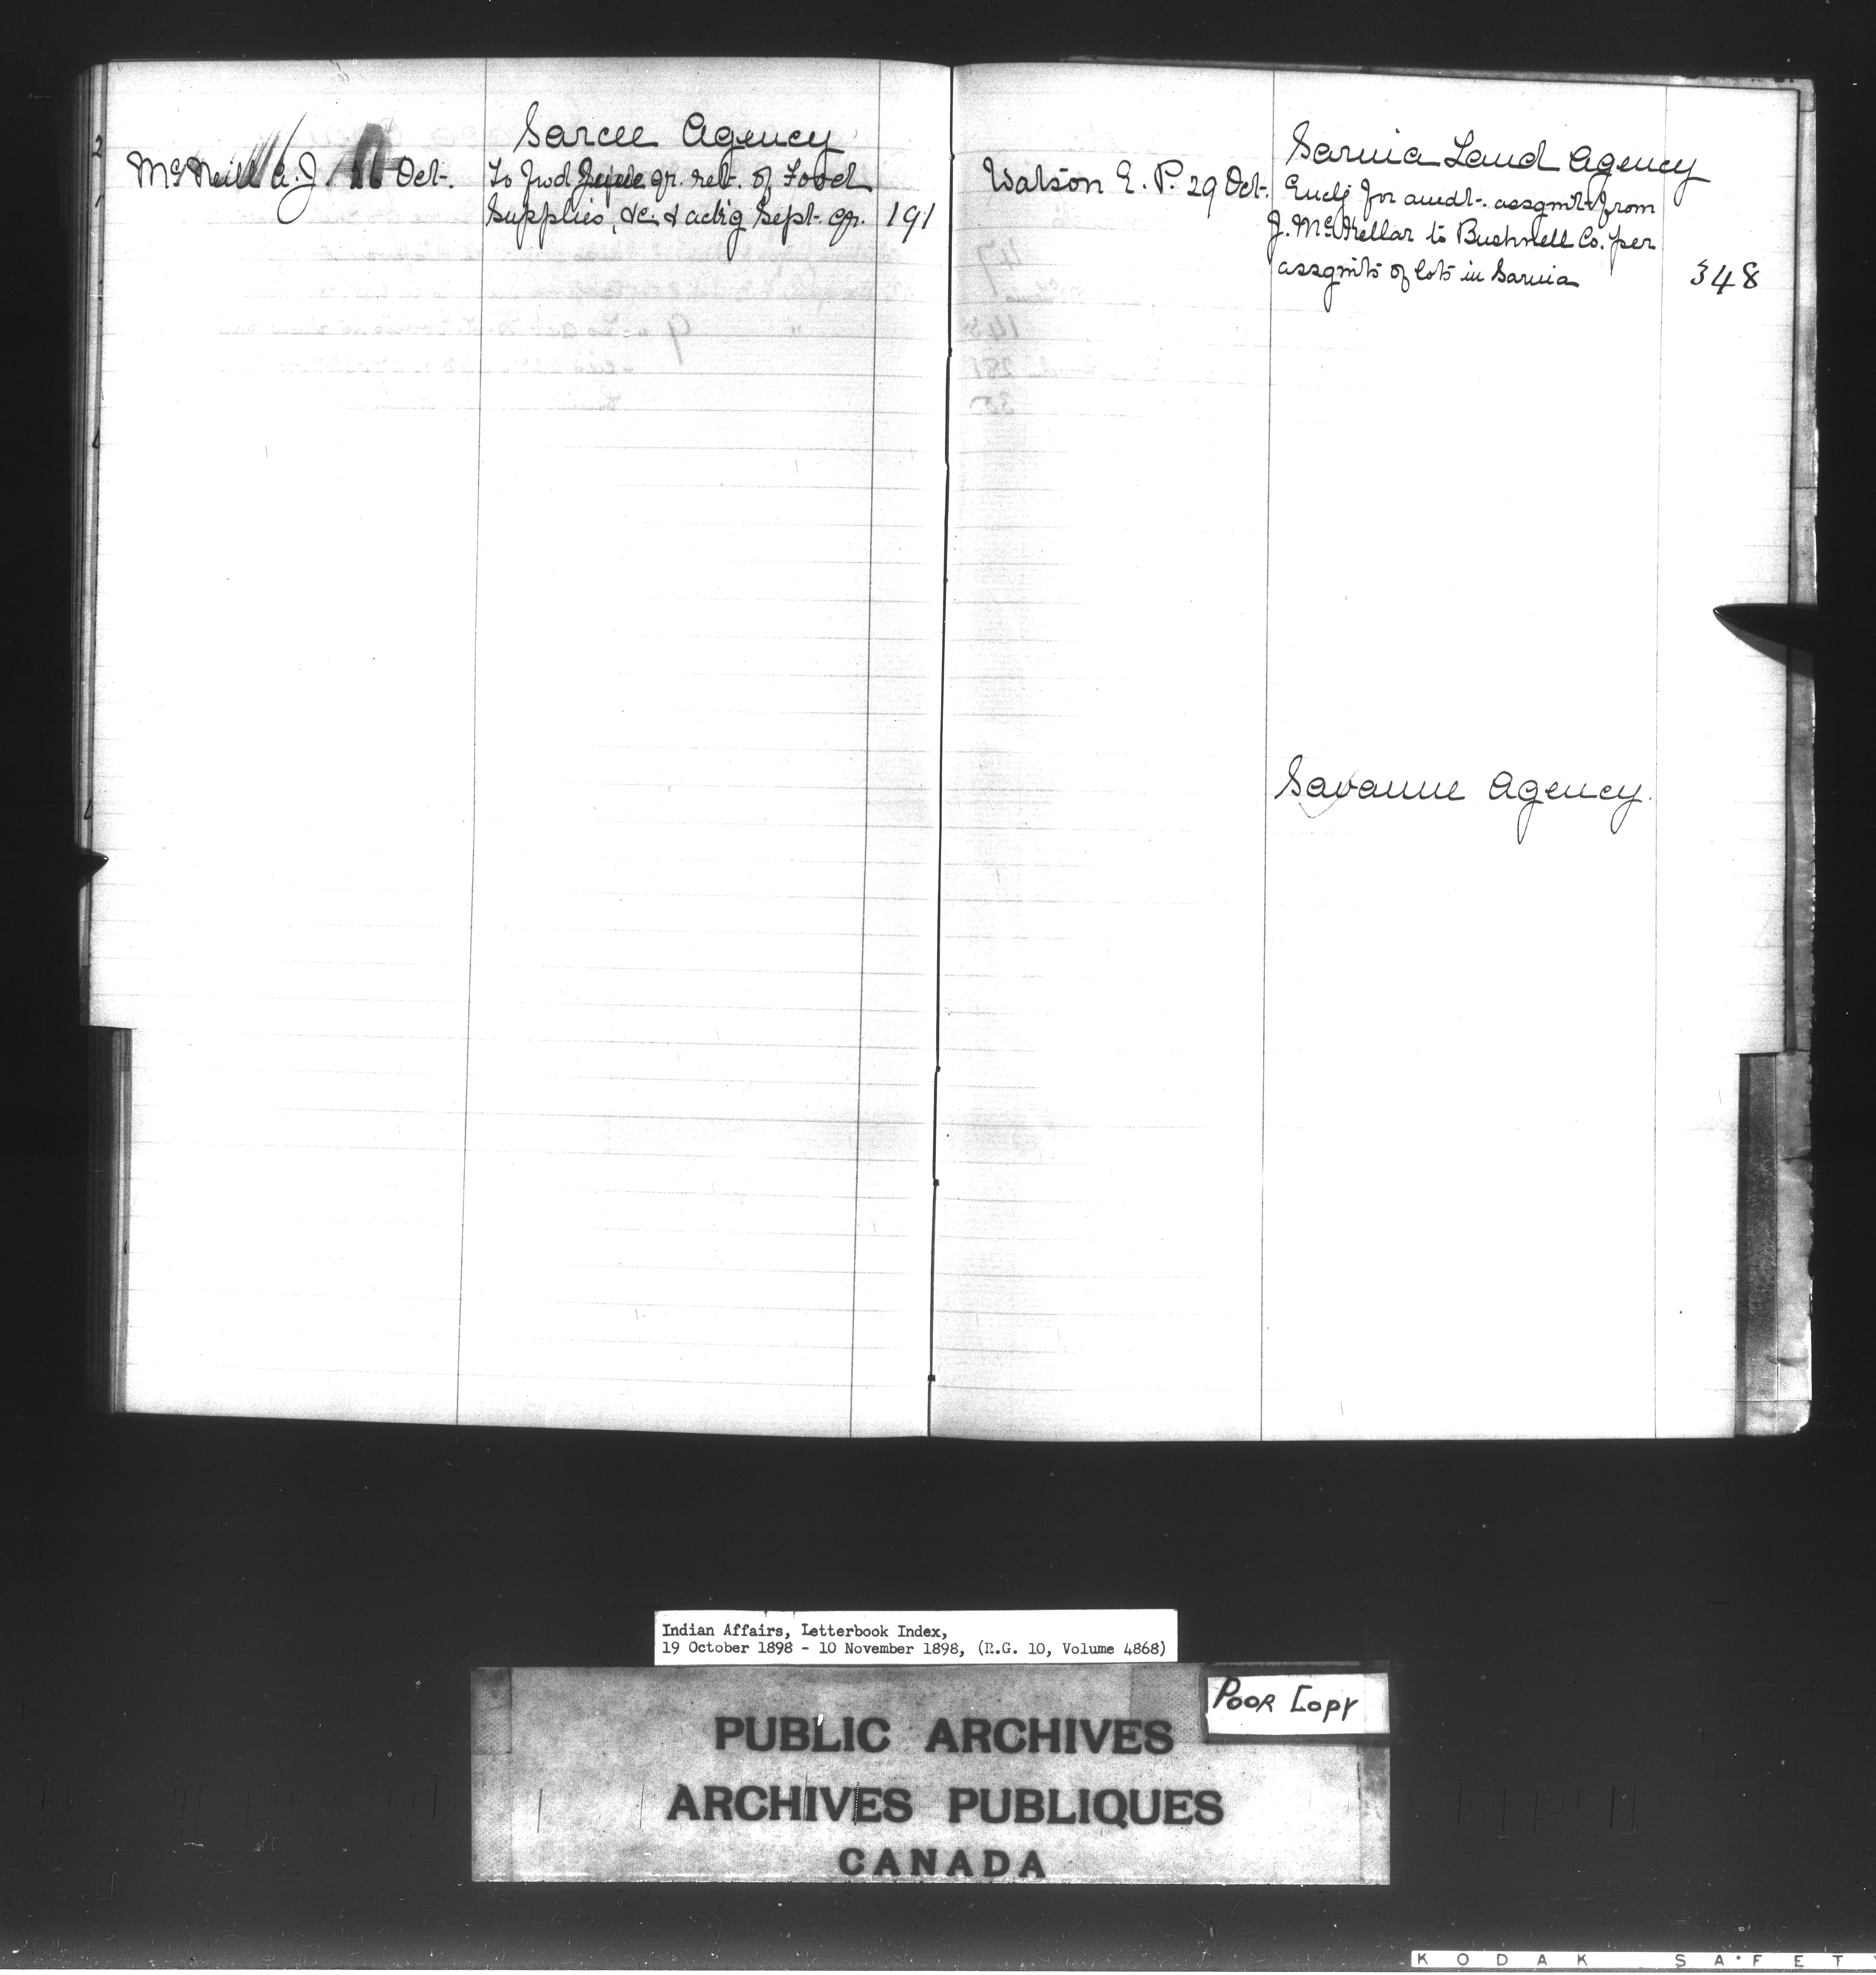 Sarcee Agency
McNeill A. J. 26 Oct. To fwd June qr. ret. of Food
Supplies, &c. & ackg Sept. qr. 191
Sarnia Land Agency
Watson E. P. 29 Oct. Encl'g for amdt. assgmt from
J. McKellar to Bushnell Co. per
assgmts of lots in Sarnia 348
Savanne Agency.
Indian Affairs, Letterbook Index,
19 October 1898 - 10 November 1898, (R.G. 10, Volume 4868)
POOR COPY
PUBLIC ARCHIVES
ARCHIVES PUBLIQUES
CANADA
KODAK SAFET